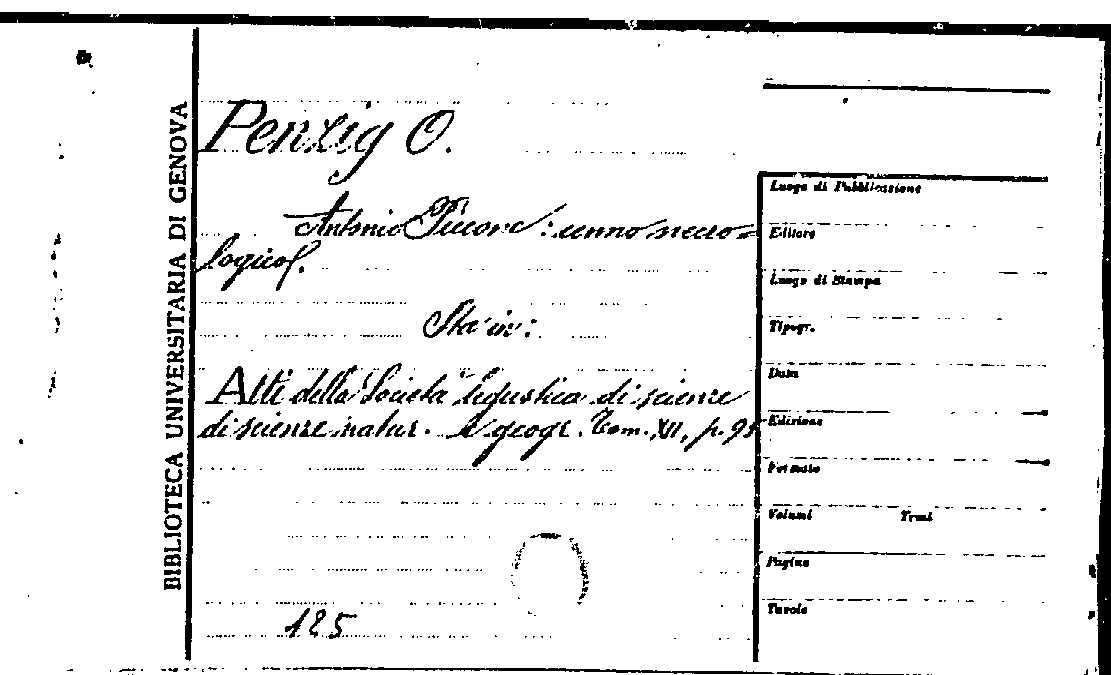 BIBLIOTECA UNIVERSITARIA DI GENOVA
Penzig O.
Antonio Piccone: cenno necro=
logico.
Sta in:
Atti della Società ligustica di scienze
di scienze natur. e geogr. Tom. XII, p. 95
125
Luogo di Pubblicazione
Editore
Luogo di Stampa
Tipogr.
Data
Edizione
Formato
Volumi Tomi
Pagine
Tavole